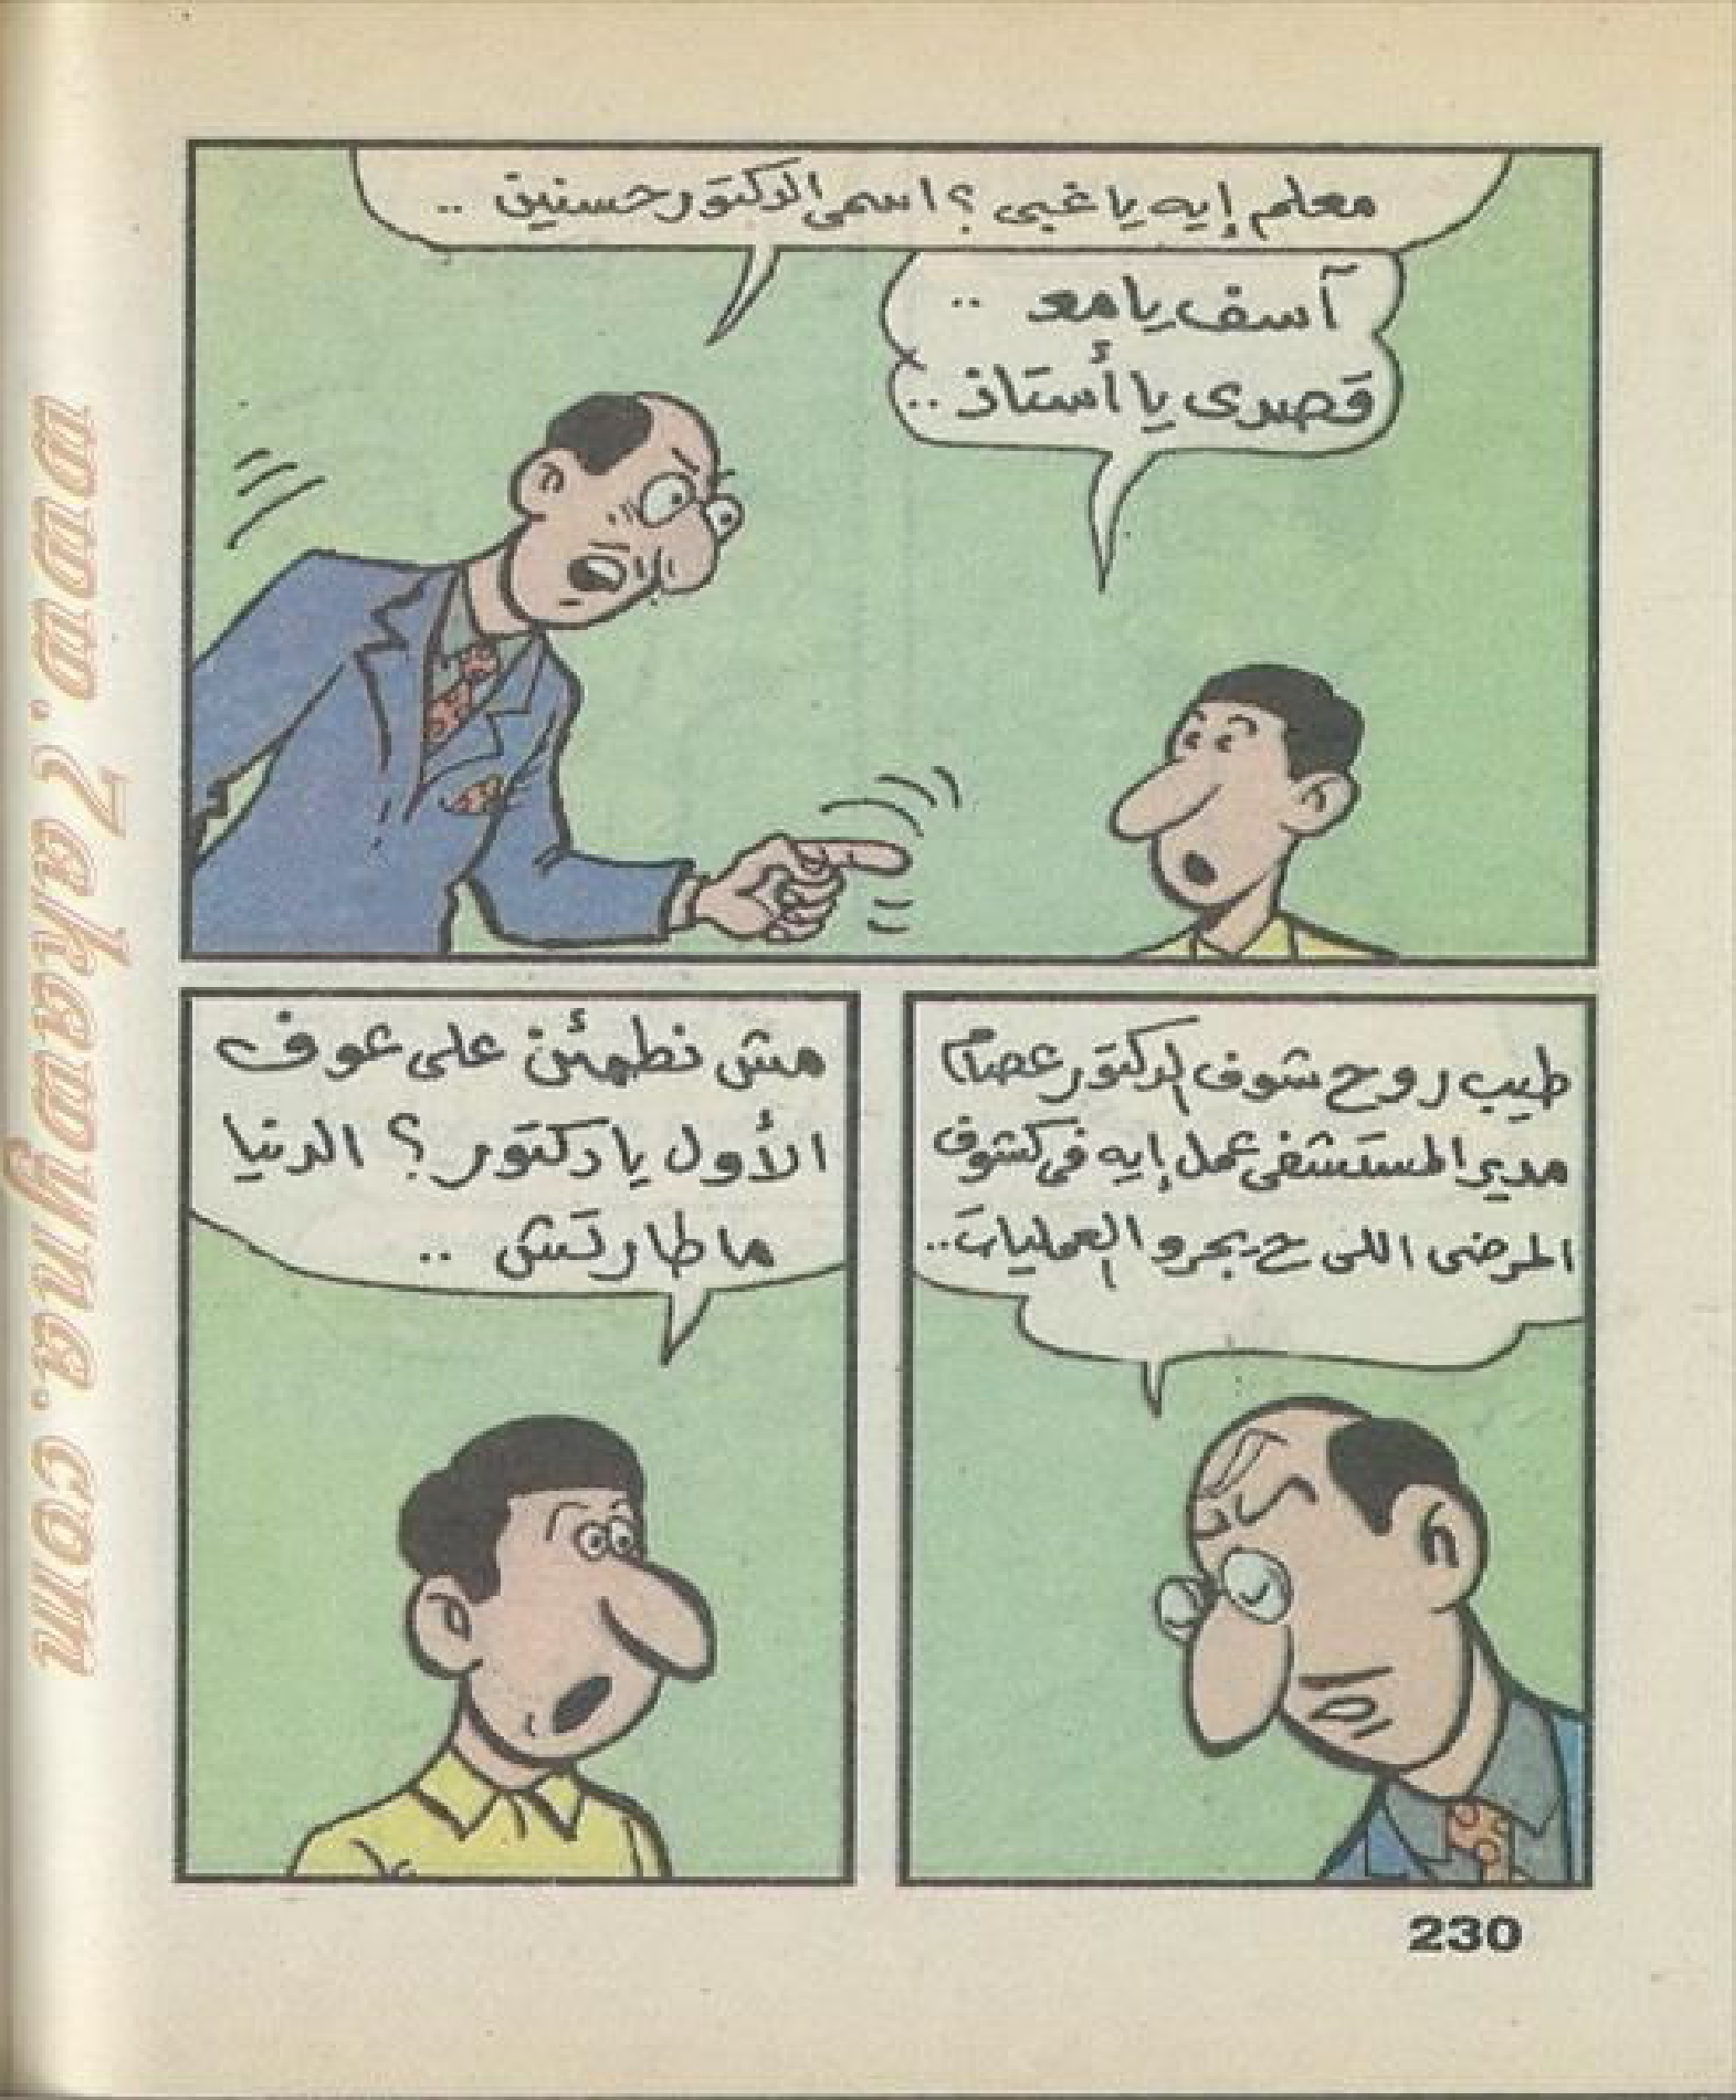 معلم إيه يا غبى ؟ اسمى الدكتور حسنين ..
آسف يا معـ ..
قصدى يا أستاذ ..
طيب روح شوف الدكتور عصام
مدير المستشفى عمل إيه فى كشوف
المرضى اللى ح يجروا العمليات ..
مش نطمئن على عوف
الأول يا دكتور ؟ الدنيا
ما طارتش ..
230
www.7akawyuna.com